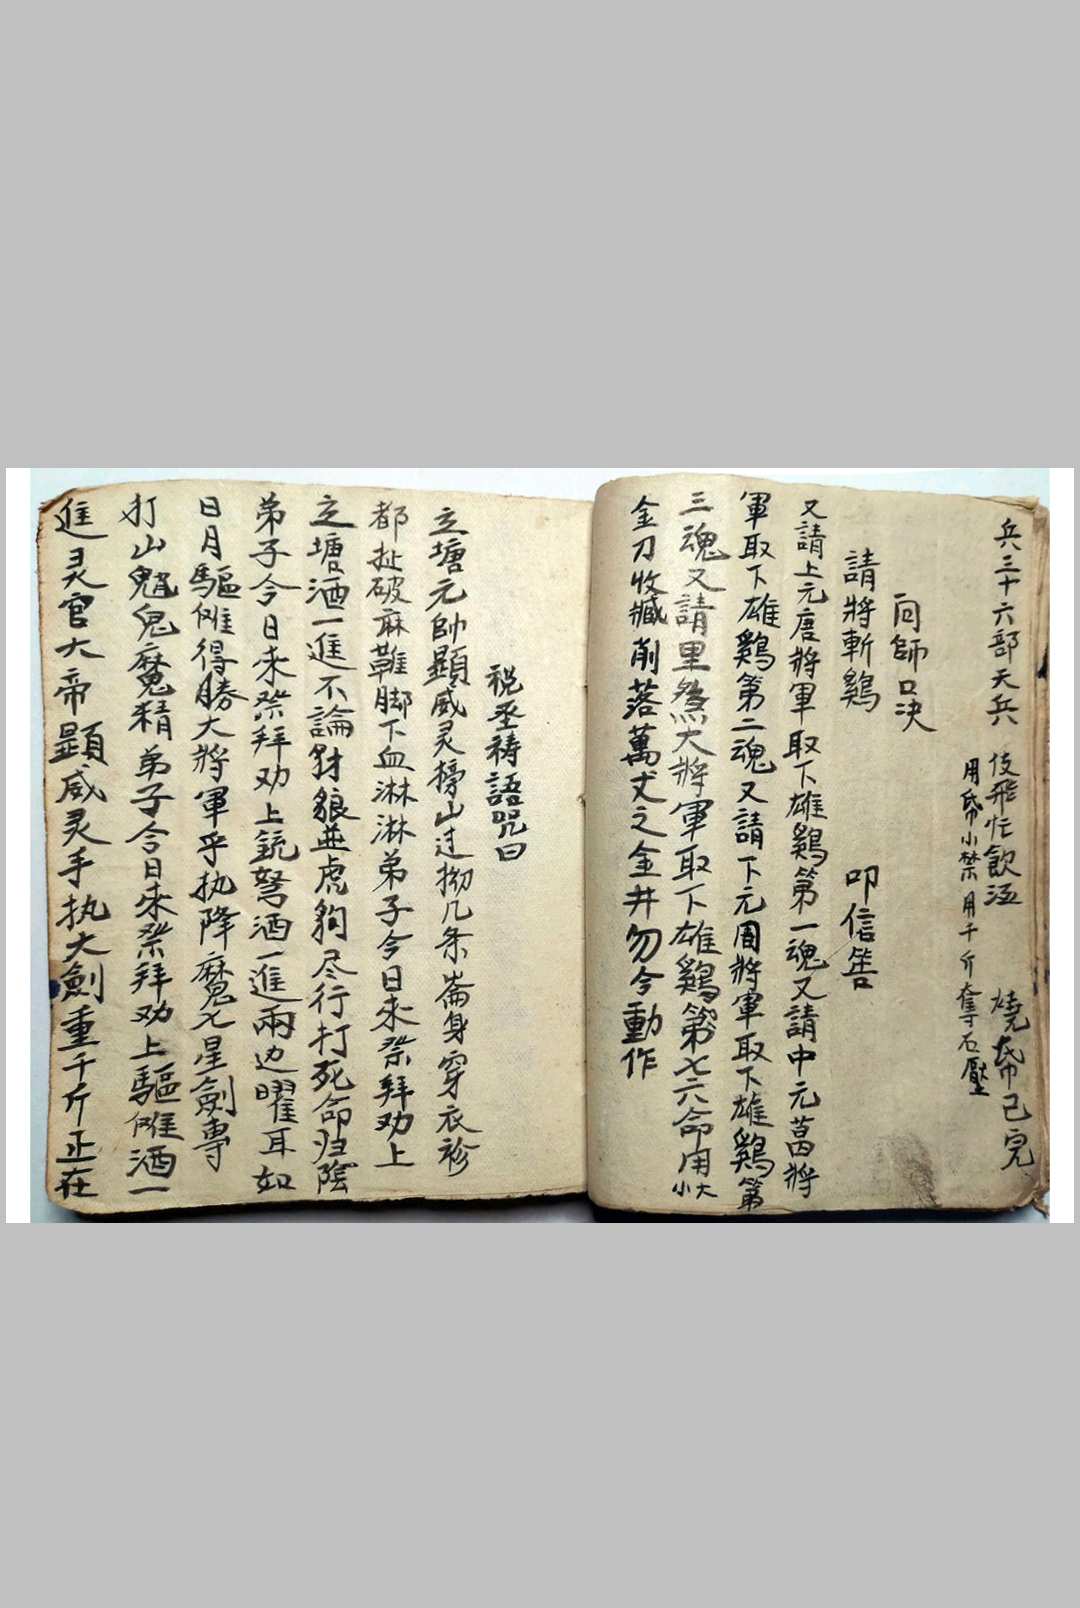 兵三十六部天兵 伎飛忙飲酒 燒帋已完
用帋小禁用千斤奪石壓
问師口决
請將斬鷄 叩信筶
又請上元唐將軍取下雄鷄第一魂又請中元葛將
軍取下雄鷄第二魂又請下元周將軍取下雄鷄第
三魂又請黑煞大將軍取下雄鷄第七六命用大小
金刀收藏削落萬丈之金井勿令動作
祝丞祷語咒曰
立塘元帥顯威灵 山过拗几条崙身穿衣袗
都扯破麻鞋脚下血淋淋弟子今日来祭拜劝上
立塘酒一進不論豺狼並虎狗尽行打死命归陰
弟子今日来祭拜劝上銃弩酒一進兩边曜耳如
日月驅傩得勝大將軍手执降魔七星劍專
打山魈鬼魔精弟子今日来祭拜劝上驅傩酒一
進灵官大帝顯威灵手执大劍重千斤正在